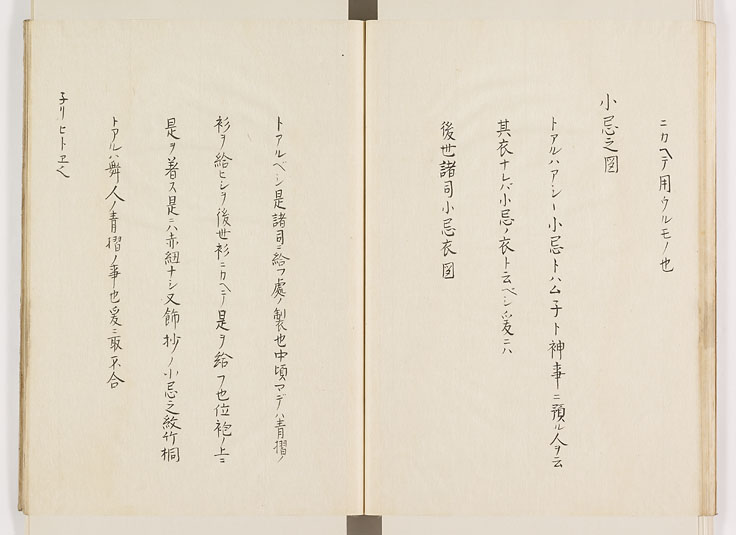 ニカヘテ用ウルモノ也
小忌之図
トアルハアシヽ小忌トハムネト神事ニ預ル人ヲ云
其衣ナレバ小忌ノ衣ト云ベシ爰ニハ
後世諸司小忌衣図
トアルベシ是諸司ニ給フ處ノ製也中頃マデハ青摺ノ
衫ヲ給ヒシヲ後世衫ニカヘテ是ヲ給フ也位袍ノ上ニ
是ヲ著ス是ニハ赤紐ナシ又飾抄ノ小忌之紋竹桐
トアルハ舞人ノ青摺ノ事也爰ニ取不合
子リヒトヱ